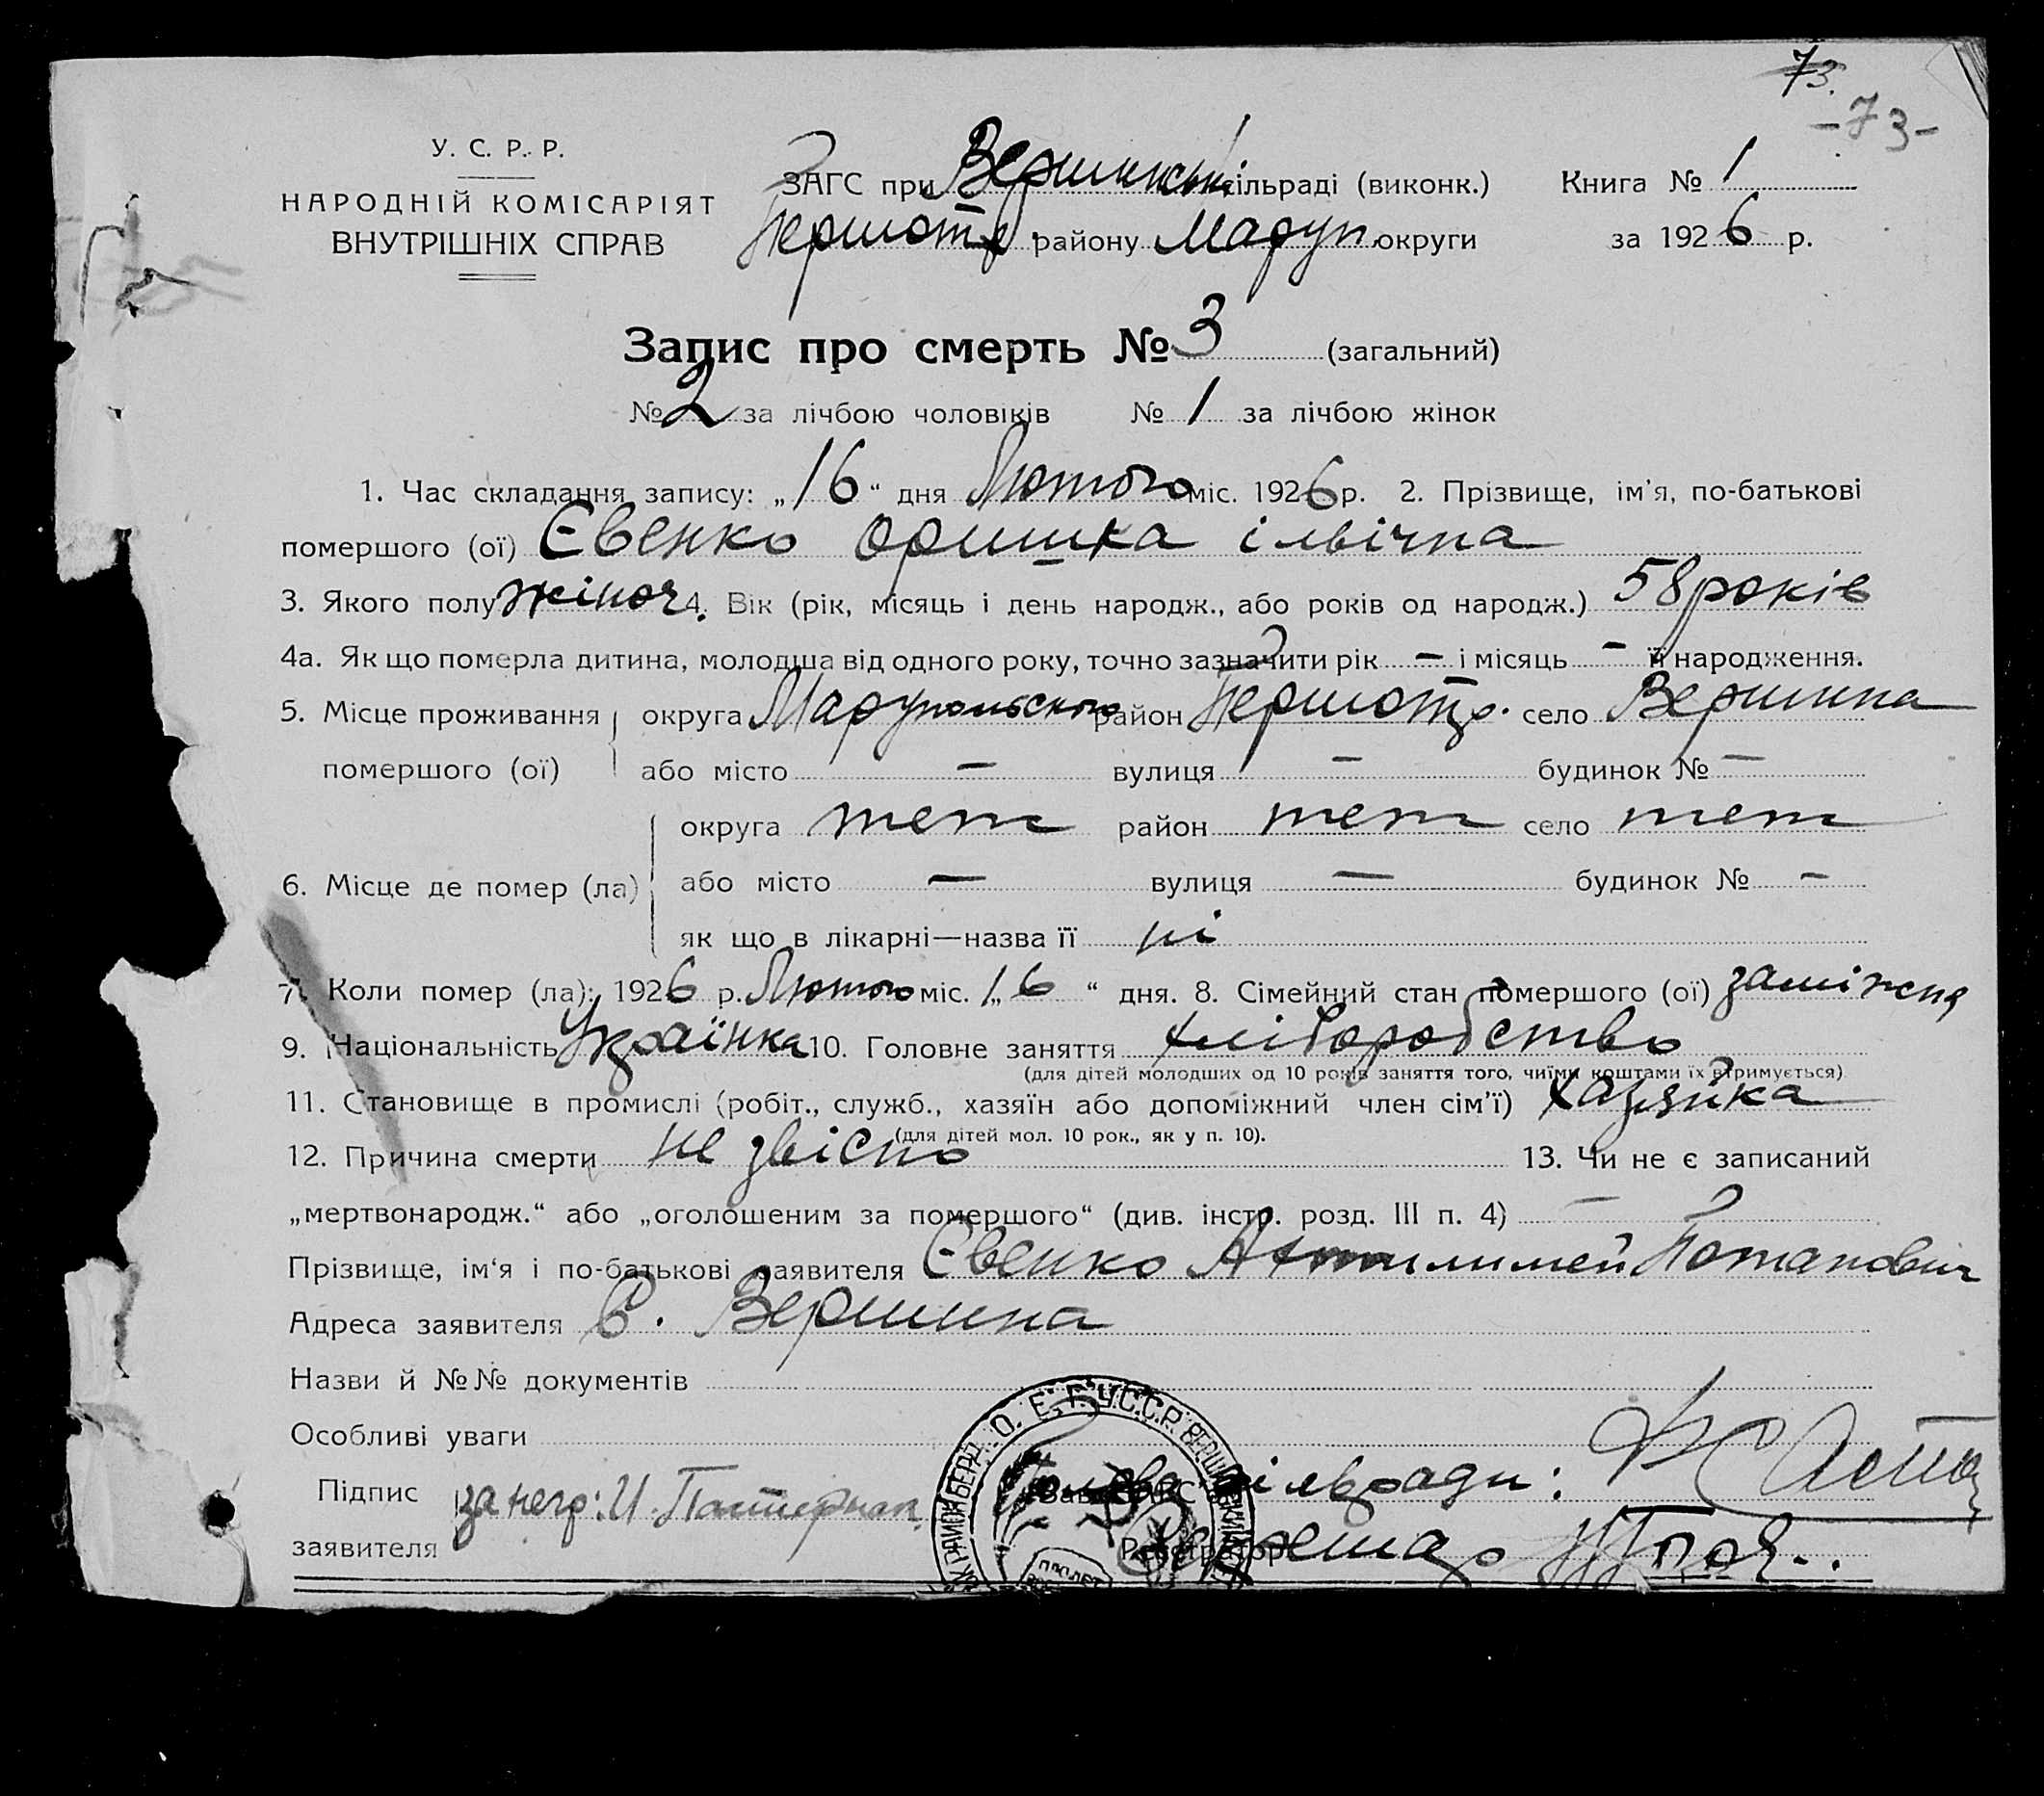 73.
-73-
У. С. Р. Р.
НАРОДНІЙ КОМІСАРІЯТ
ВНУТРІШНІХ СПРАВ
ЗАГС при Вершинській сільраді (виконк.) Книга № 1
Першотр. району Маруп. округи за 1926 р.
Запис про смерть № 3 (загальний)
№ 2 за лічбою чоловіків № 1 за лічбою жінок
1. Час складання запису: „16“ дня Лютого міс. 1926 р. 2. Прізвище, ім'я, по-батькові
помершого (ої) Євенко Оришка ілвічна
3. Якого полу жіноч. 4. Вік (рік, місяць і день народж., або років од народж.) 58 років
4а. Як що померла дитина, молодша від одного року, точно зазначити рік — і місяць — її народження.
5. Місце проживання округа Марупольского район Першотр. село Вершина
помершого (ої) або місто — вулиця — будинок № —
округа теж район теж село теж
6. Місце де помер (ла) або місто — вулиця — будинок № —
як що в лікарні—назва її ні
7. Коли помер (ла): 1926 р. Лютого міс. „16“ дня. 8. Сімейний стан помершого (ої) заміжня
9. Національність Українка 10. Головне заняття хліборобство
(для дітей молодших од 10 років заняття того, чиїми коштами їх втримується)
11. Становище в промислі (робіт., служб., хазяїн або допоміжний член сім'ї) хазяйка
(для дітей мол. 10 рок., як у п. 10).
12. Причина смерти не звісно 13. Чи не є записаний
„мертвонародж.“ або „оголошеним за помершого“ (див. інстр. розд. III п. 4) —
Прізвище, ім'я і по-батькові заявителя Євенко Потапович
Адреса заявителя С. Вершина
Назви й №№ документів
Особливі уваги
Підпис за негр: И. Голова сільради:
заявителя Реєстратор